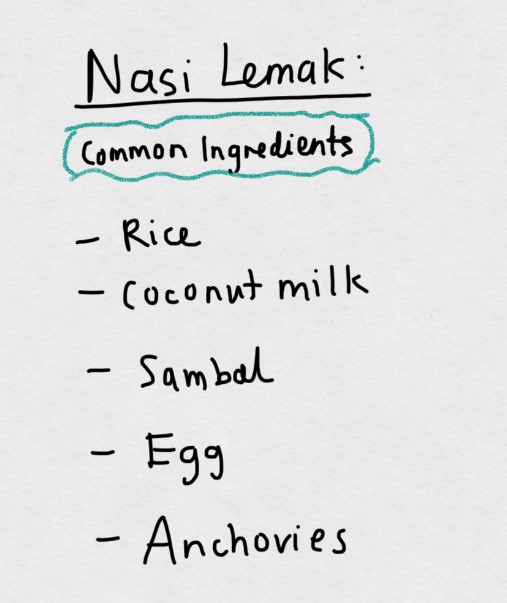 Nasi Lemak:
Common Ingredients
- Rice
- Coconut milk
- Sambal
- Egg
- Anchovies